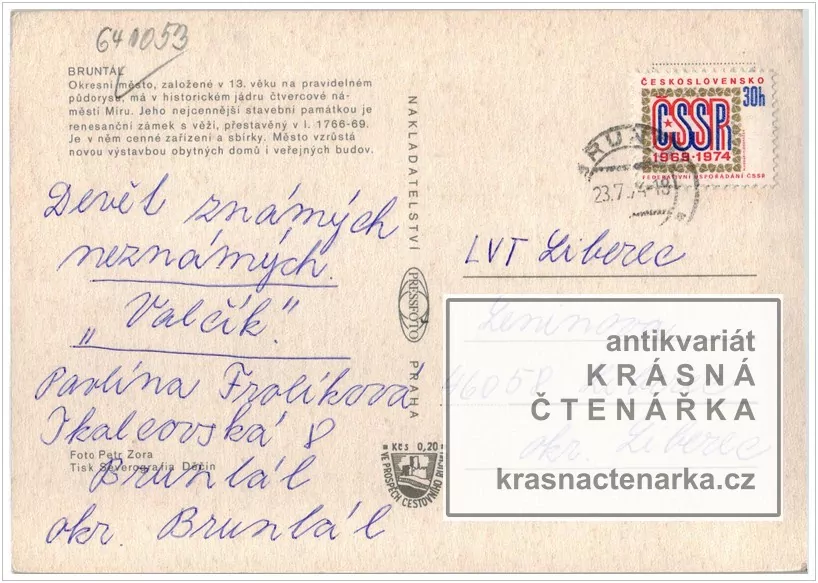 641053
BRUNTÁL
Okresní město, založené v 13. věku na pravidelném
půdoryse, má v historickém jádru čtvercové ná-
městí Míru. Jeho nejcennější stavební památkou je
renesanční zámek s věží, přestavěný v l. 1766-69.
Je v něm cenné zařízení a sbírky. Město vzrůstá
novou výstavbou obytných domů i veřejných budov.
Devět známých
neznámých.
„Valčík."
Pavlína Frolíková
Skalcovská 8
Foto Petr Zora
Tisk Severografia Děčín
Bruntál
okr. Bruntál
NAKLADATELSTVÍ
PRESSFOTO
PRAHA
Kčs 0,20
VE PROSPĚCH CESTOVNÍHO RUCHU
ČESKOSLOVENSKO
30h
ČSSR
1969-1974
FEDERATIVNÍ USPOŘÁDÁNÍ ČSSR
LVT Liberec
Leninova
46058
okr. Liberec
antikvariát
KRÁSNÁ
ČTENÁŘKA
krasnactenarka.cz